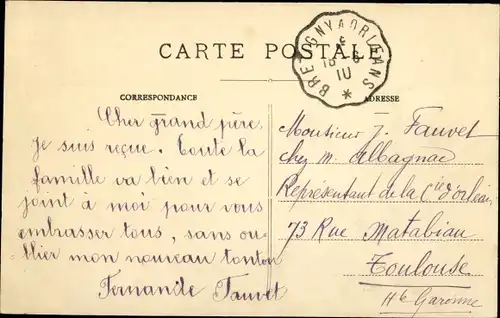 CARTE POSTALE
BRETIGNY A ORLEANS
10
CORRESPONDANCE
ADRESSE
Cher grand père,
Je suis reçue. Toute la
famille va bien et se
joint à moi pour vous
embrasser tous, sans ou-
blier mon nouveau tonton
Fernande Fauvet
Monsieur J. Fauvet
chez M. Albagnac
Représentant de la Cie d'orléans
73 Rue Matabiau
Toulouse
Hte Garonne